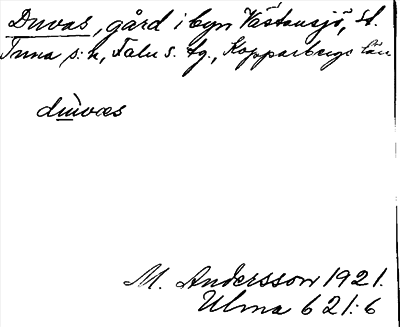 Duvas, gård i byn Västansjö, St.
Tuna s:n, Falu s. tg., Kopparbergs län
dùvæs
M. Andersson 1921.
Ulma 621:6